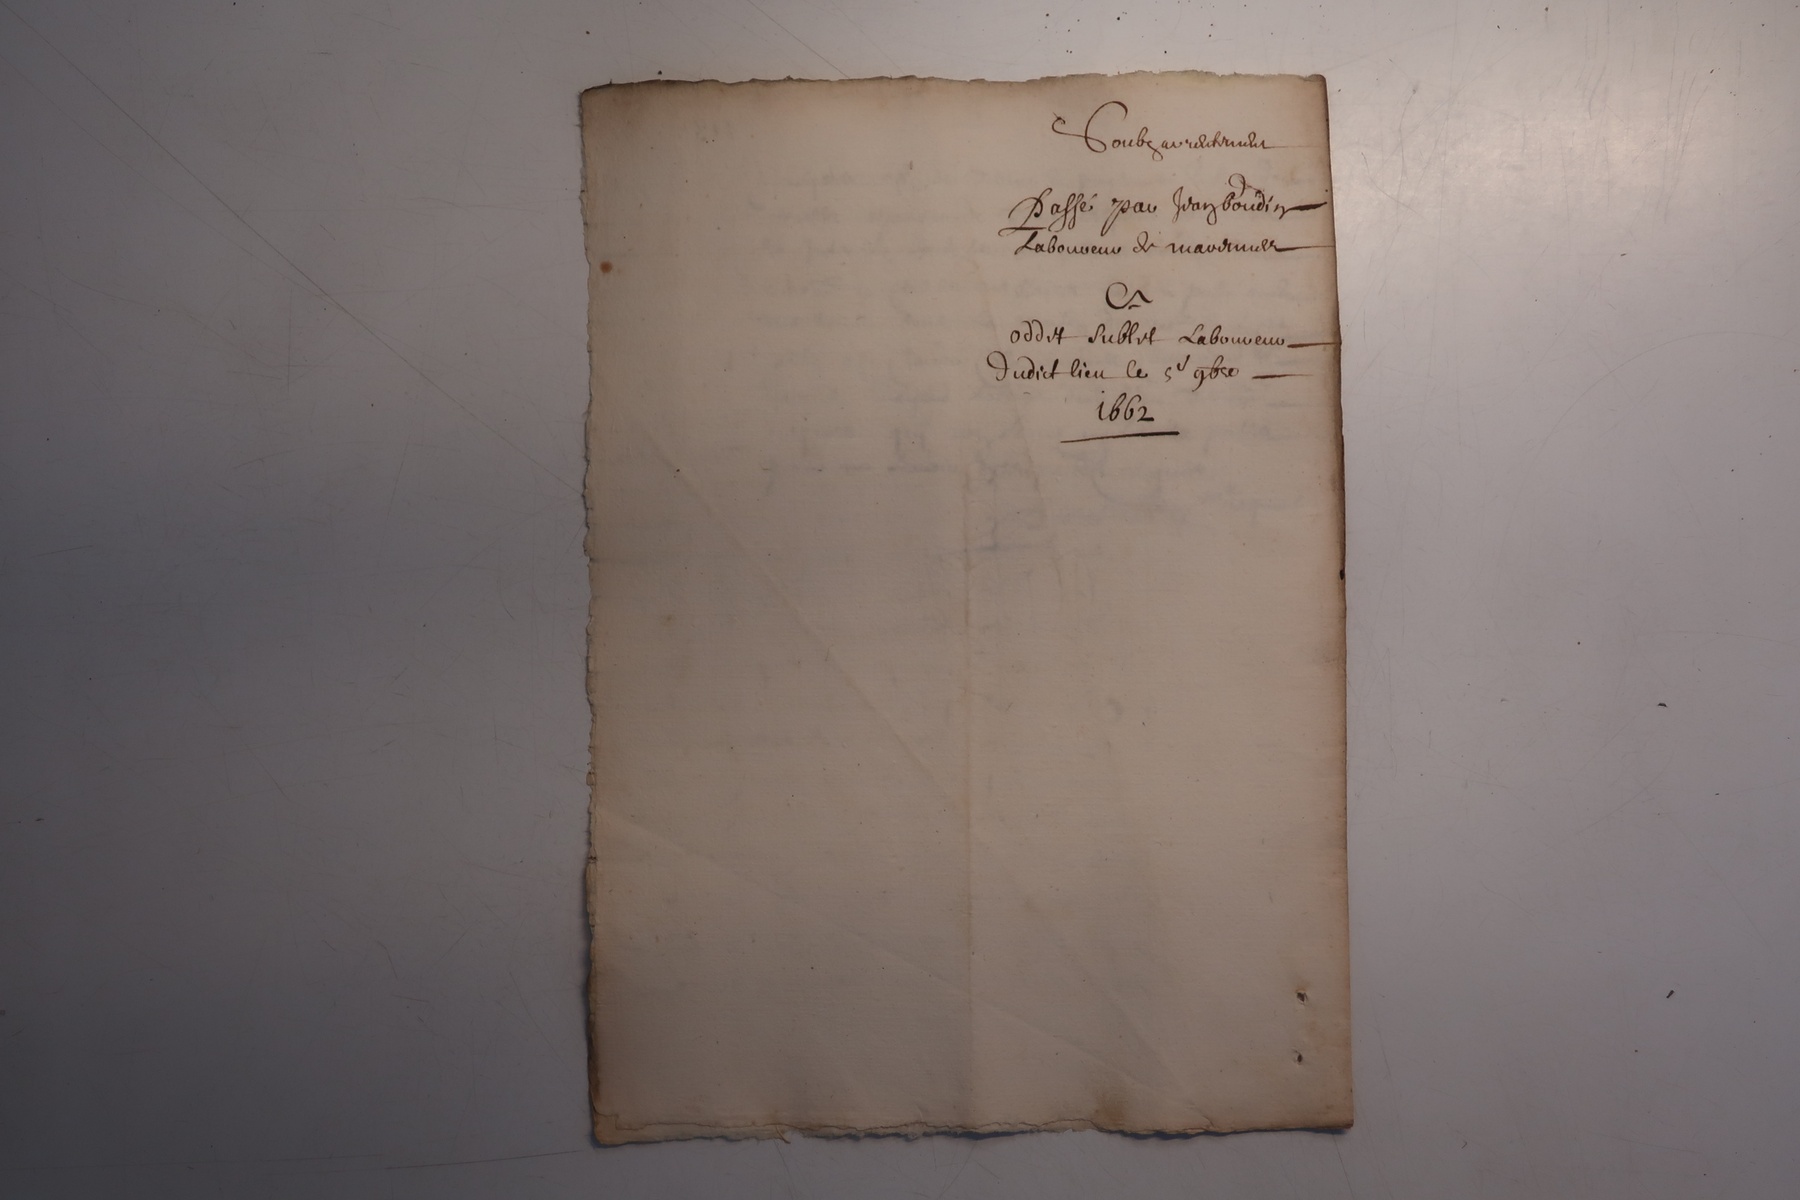 Soubzarrentement
Passé par Jean boudin
Laboureur de mavernier
Et
oddet sublet Laboureur
Dudict lieu le 5e 9bre
1662